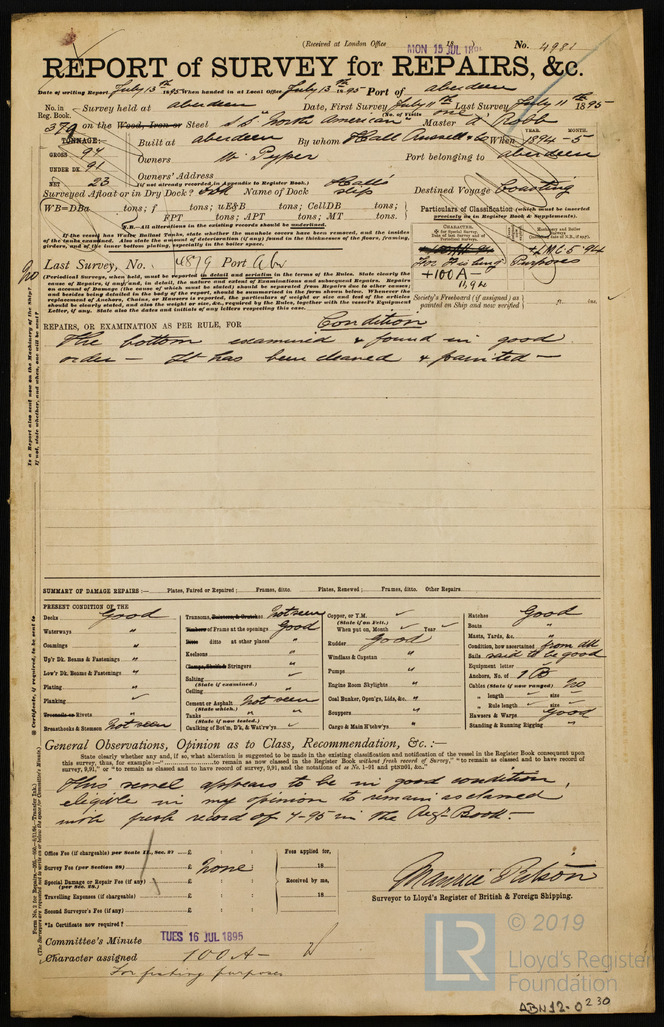 (Received at London Office MON 15 JUL 189 No. 4981
REPORT of SURVEY for REPAIRS, &c.
Date of writing Report July 13th 1895 When handed in at Local Office July 13th 1895 Port of aberdeen
No. in Reg. Book. Survey held at aberdeen Date, First Survey July 11th Last Survey July 11th 1895
(No. of Visits one
379 on the Wood, Iron or Steel S.S. "North American" Master a Robb
TONNAGE: Built at aberdeen By whom Hall Russell & Co When 1894 - 5
YEAR. MONTH.
GROSS 94 Owners W. Pyper Port belonging to aberdeen
UNDER DK. 91 Owners' Address
NET 23 (if not already recorded, in Appendix to Register Book.)
Surveyed Afloat or in Dry Dock? Name of Dock Hall's slip Destined Voyage Coasting
WB=DBa tons; f tons; uE&B tons; CellDB tons;
FPT tons; APT tons; MT tons.
N.B.—All alterations in the existing records should be underlined.
Particulars of Classification (which must be inserted precisely as in Register Book & Supplements).
If the vessel has Water Ballast Tanks, state whether the manhole covers have been removed, and the insides of the tanks examined. Also state the amount of deterioration (if any) found in the thicknesses of the floors, framing, girders, and of the inner bottom plating, especially in the boiler space.
+LMC 5-94
For Fishing Purposes
+100A-
Last Survey, No. 4879 Port Abn
(Periodical Surveys, when held, must be reported in detail and seriatim in the terms of the Rules. State clearly the cause of Repairs, if any; and, in detail, the nature and extent of Examinations and subsequent Repairs. Repairs on account of Damage (the cause of which must be stated) should be separated from Repairs due to other causes; and besides being detailed in the body of the report, should be summarized in the form shown below. Whenever the replacement of Anchors, Chains, or Hawsers is reported, the particulars of weight or size and test of the articles should be clearly stated, and also the weight or size, &c., required by the Rules, together with the vessel's Equipment Letter, if any. State also the dates and initials of any letters respecting this case.
Society's Freeboard (if assigned) as painted on Ship and now verified ft. ins.
REPAIRS, OR EXAMINATION AS PER RULE, FOR Condition
The bottom examined & found in good
order — It has been cleaned & painted —
SUMMARY OF DAMAGE REPAIRS :— Plates, Faired or Repaired ; Frames, ditto. Plates, Renewed ; Frames, ditto. Other Repairs
PRESENT CONDITION OF THE
Decks Good
Waterways "
Coamings "
Up'r Dk. Beams & Fastenings "
Low'r Dk. Beams & Fastenings "
Plating "
Planking ✓
Treenails or Rivets "
Breasthooks & Stemson Not seen
Transoms, Pointers, & Crutches Not seen
Timbers or Frame at the openings Good
ditto at other places "
Keelsons "
Stringers "
Salting ✓
(State if examined.)
Ceiling "
Cement or Asphalt Not seen
(State which.)
Tanks "
(State if now tested.)
Caulking of Bot'm, D'k, & Wat'rw'ys ✓
Copper, or Y.M. ✓
(State if on Felt.)
When put on, Month ✓ Year ✓
Rudder Good
Windlass & Capstan "
Pumps "
Engine Room Skylights "
Coal Bunker, Open'gs, Lids, &c. "
Scuppers "
Cargo & Main H'tchw'ys "
Hatches Good
Boats "
Masts, Yards, &c. "
Condition, how ascertained from dk
Sails said to be good
Equipment letter
Anchors, No. of 1
Cables (State if now ranged) No
" length size
" Rule length size
Hawsers & Warps Good
Standing & Running Rigging "
General Observations, Opinion as to Class, Recommendation, &c. :—
State clearly whether any and, if so, what alteration is suggested to be made in the existing classification and notification of the vessel in the Register Book consequent upon this survey, thus, for example :—"..........to remain as now classed in the Register Book without fresh record of Survey," "to remain as classed and to have record of survey, 9,91," or "to remain as classed and to have record of survey, 9,91, and the notations of ss No. 1-91 and ptND91, &c."
This vessel appears to be in good condition,
eligible in my opinion to remain as classed
with fresh record of 7-95 in the Regr. Book.-
Office Fee (if chargeable) per Scale II., Sec. 27 £ : :
Survey Fee (per Section 28) £ none
Special Damage or Repair Fee (if any) £ : :
(per Sec. 28.)
Travelling Expenses (if chargeable) £ : :
Second Surveyor's Fee (if any) £ : :
Fees applied for, 18
Received by me, 18
*Is Certificate now required ?
Surveyor to Lloyd's Register of British & Foreign Shipping.
Committee's Minute TUES 16 JUL 1895
Character assigned 100A-
For fishing purposes
© 2019
LR Lloyd's Register Foundation
ABN12-0230